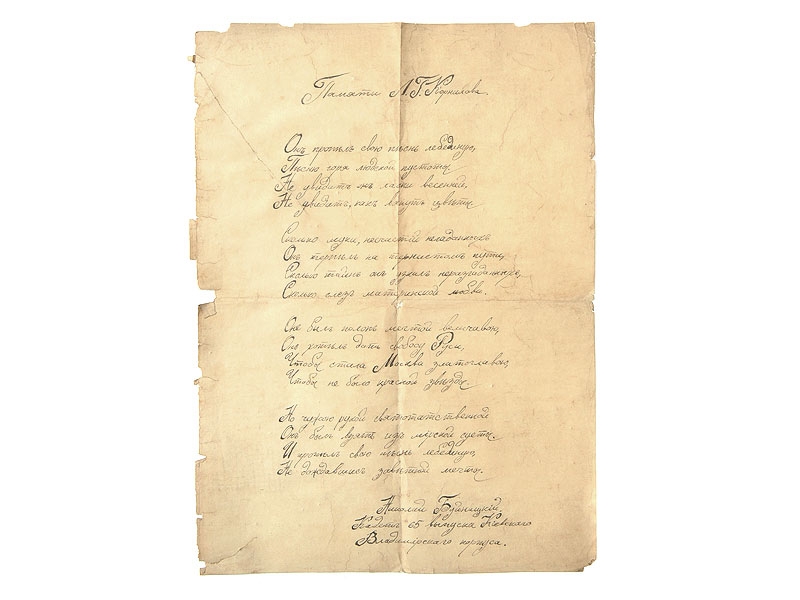 Памяти Л. Г. Корнилова.
Онъ пропѣлъ свою пѣснь лебединую,
Пѣсню горя людской пустоты
Не увидитъ онъ ласки весенней,
Не увидитъ, какъ вянутъ цвѣты
Сколько муки, несчастій нежданныхъ
Онъ терпѣлъ на тернистомъ пути,
Сколько тайнъ онъ узналъ неразгаданныхъ,
Сколько слезъ материнской любви.
Онъ былъ полонъ мечтой величавою,
Онъ хотѣлъ дать свободу Руси,
Чтобы стала Москва златоглавою,
Чтобы не было красной звѣзды
Но чужою рукой святотатственной
Онъ былъ взятъ изъ мірской суеты.
И пропѣлъ свою пѣснь лебединую,
Не дождавшись завѣтной мечты.
Николай Будницкій,
Кадетъ 65 выпуска Кіевскаго
Владимірскаго корпуса.